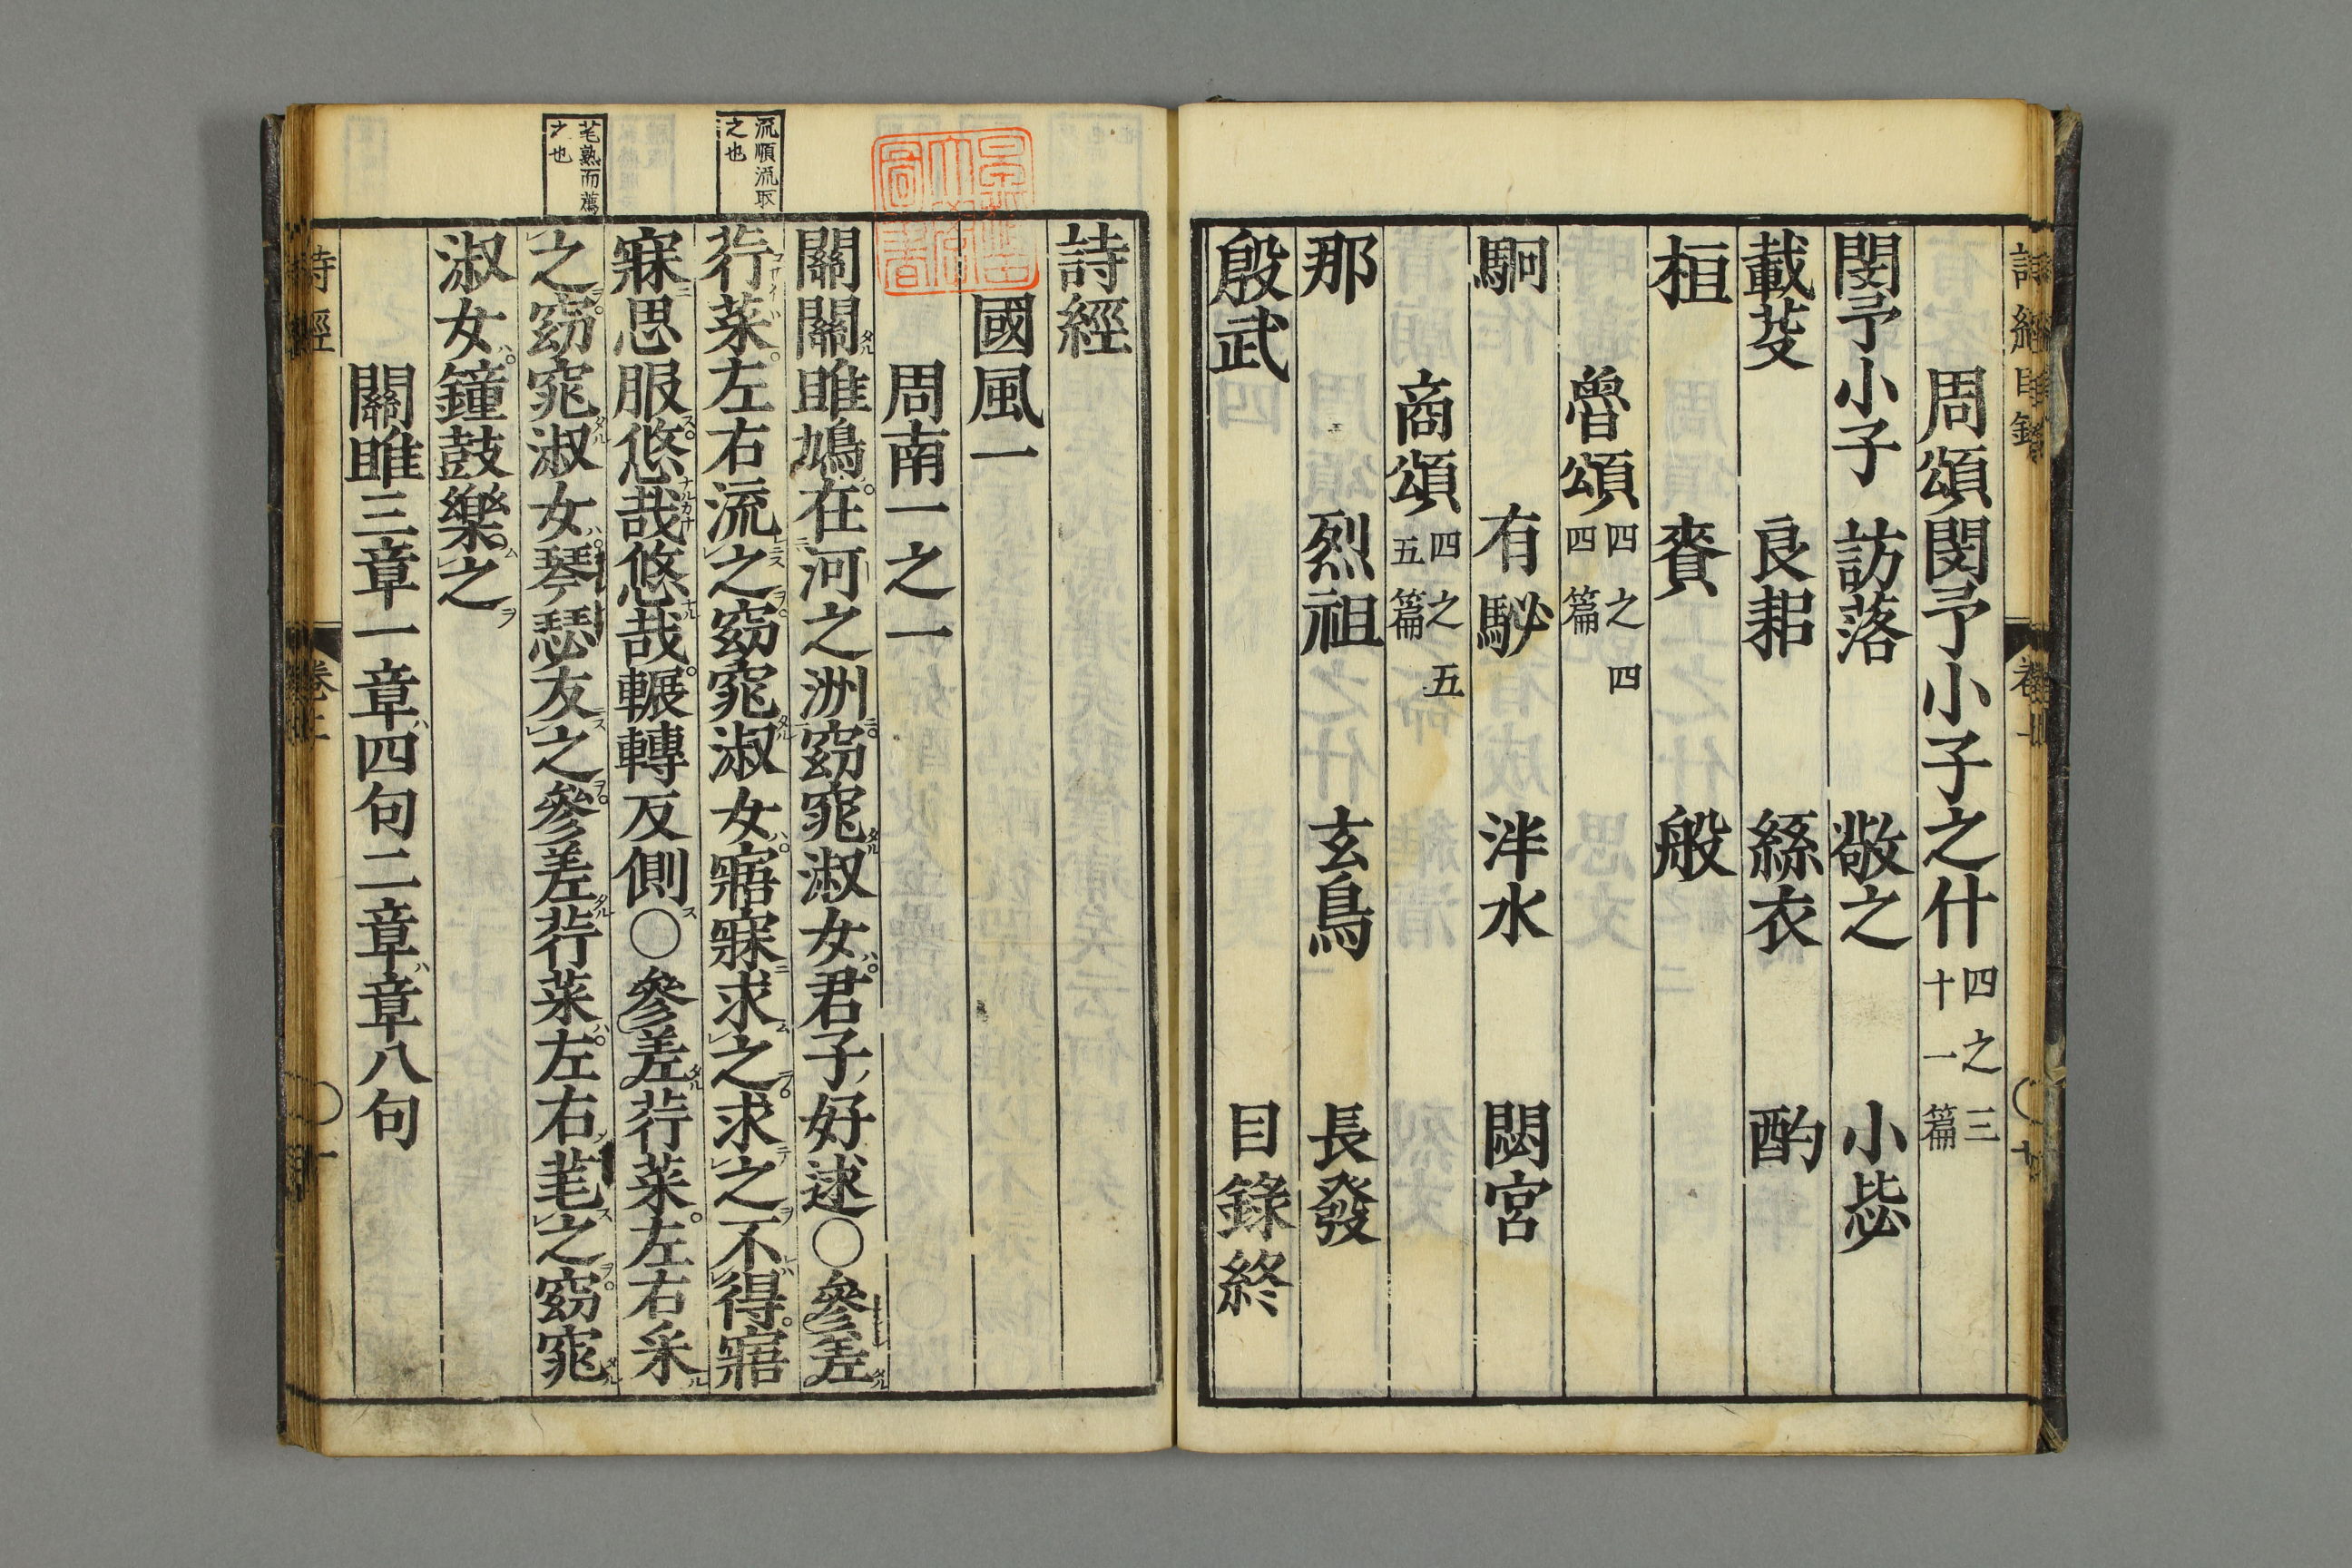 周頌閔予小子之什 四之三 十一篇
閔予小子 訪落 敬之 小毖
載芟 良耜 絲衣 酌
桓 賚 般
魯頌 四之四 四篇
駉 有駜 泮水 閟宮
商頌 四之五 五篇
那 烈祖 玄鳥 長發
殷武 目錄終
詩經
國風一
周南一之一
關關雎鳩在河之洲窈窕淑女君子好逑〇參差
荇菜左右流之窈窕淑女寤寐求之求之不得寤
寐思服悠哉悠哉輾轉反側〇參差荇菜左右采
之窈窕淑女琴瑟友之參差荇菜左右芼之窈窕
淑女鐘鼓樂之
關雎三章一章四句二章章八句
流順流取
之也
芼熟而薦
之也
詩經